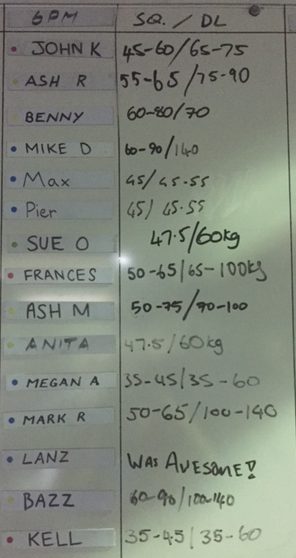 6PM SQ. / DL
JOHN K 45-60/65-75
ASH R 55-65/75-90
BENNY 60-80/70
MIKE D 60-90/140
Max 45/45-55
Pier 45/45-55
SUE O 47.5/60kg
FRANCES 50-65/65-100kg
ASH M 50-75/70-100
ANITA 47.5/60kg
MEGAN A 35-45/35-60
MARK R 50-65/100-140
LANZ WAS AVESOME!
BAZZ 60-90/100-140
KELL 35-45/35-60